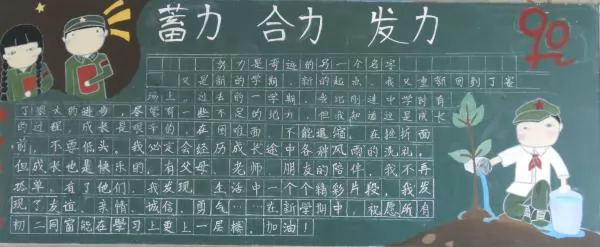 蓄力 合力 发力
90
努力是奇迹的另一个名字
又是新的学期,新的起点,我又重新回到了赛
场上。过去的一学期,我比刚进中学时有
了很大的进步,尽管有一些不足的地方,但我知道这是成长
的过程,成长是艰辛的,在困难面,不能退缩,在挫折面
前,不要低头,我必定会经历成长途中各种风雨的洗礼,
但成长也是快乐的,有父母、老师、朋友的陪伴,我不再
孤单,有了他们,我发现,生活中一个个精彩片段,我发
现了友谊、亲情、诚信、勇气……在新学期中,祝愿所有
初二同窗能在学习上更上一层楼,加油!